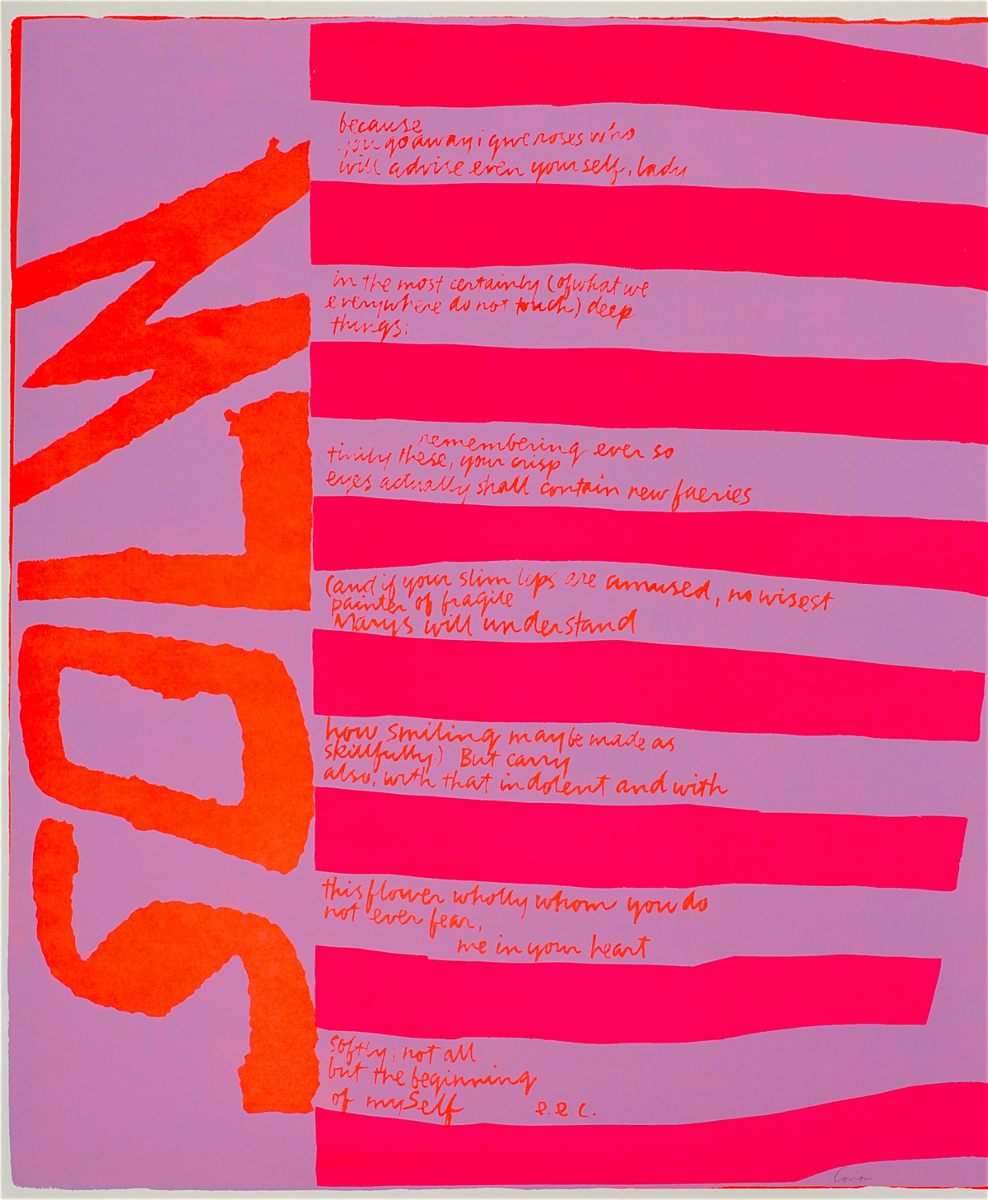 SOLW
because
you go away i give roses who
will advise even yourself, lady
in the most certainly (of what we
everywhere do not touch) deep
things;
remembering ever so
tinily these, your crisp
eyes actually shall contain new faeries
(and if your slim lips are amused, no wisest
painter of fragile
Marys will understand
how smiling may be made as
skillfully) But carry
also, with that indolent and with
this flower wholly whom you do
not ever fear,
me in your heart
softly; not all
but the beginning
of mySelf e. e c.
Corita